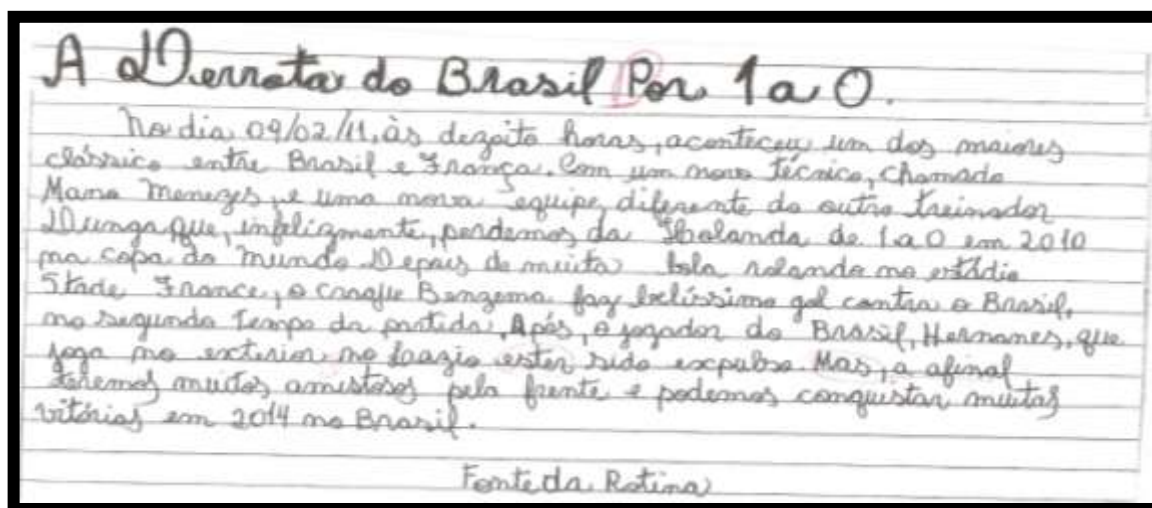 A Derrota do Brasil Por 1 a 0.
No dia 09/02/11, às dezoito horas, aconteceu um dos maiores
clássico entre Brasil e França. Com um novo técnico, chamado
Mano Menezes, e uma nova equipe, diferente do outro treinador
Dunga que, infelizmente, perdemos da Holanda de 1 a 0 em 2010
na copa do mundo. Depois de muita bola rolando no estádio
Stade France, o craque Benzema faz belíssimo gol contra o Brasil,
no segundo tempo da partida. Após, o jogador do Brasil, Hernanes, que
joga no exterior no Laazio ester sido expulso. Mas, a afinal
teremos muitos amistosos pela frente e podemos conquistar muitas
vitórias em 2014 no Brasil.
Fonte da Rotina